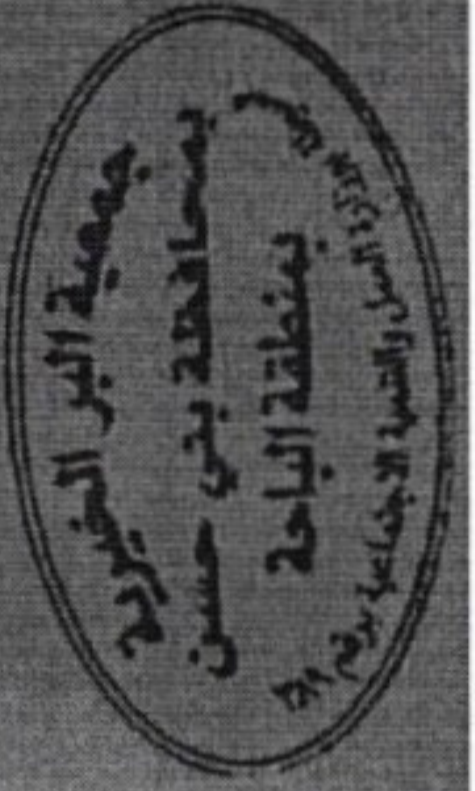 جمعية البر الخيرية
بمحافظة بني حسن
بمنطقة الباحة
وزارة العمل والتنمية الاجتماعية برقم